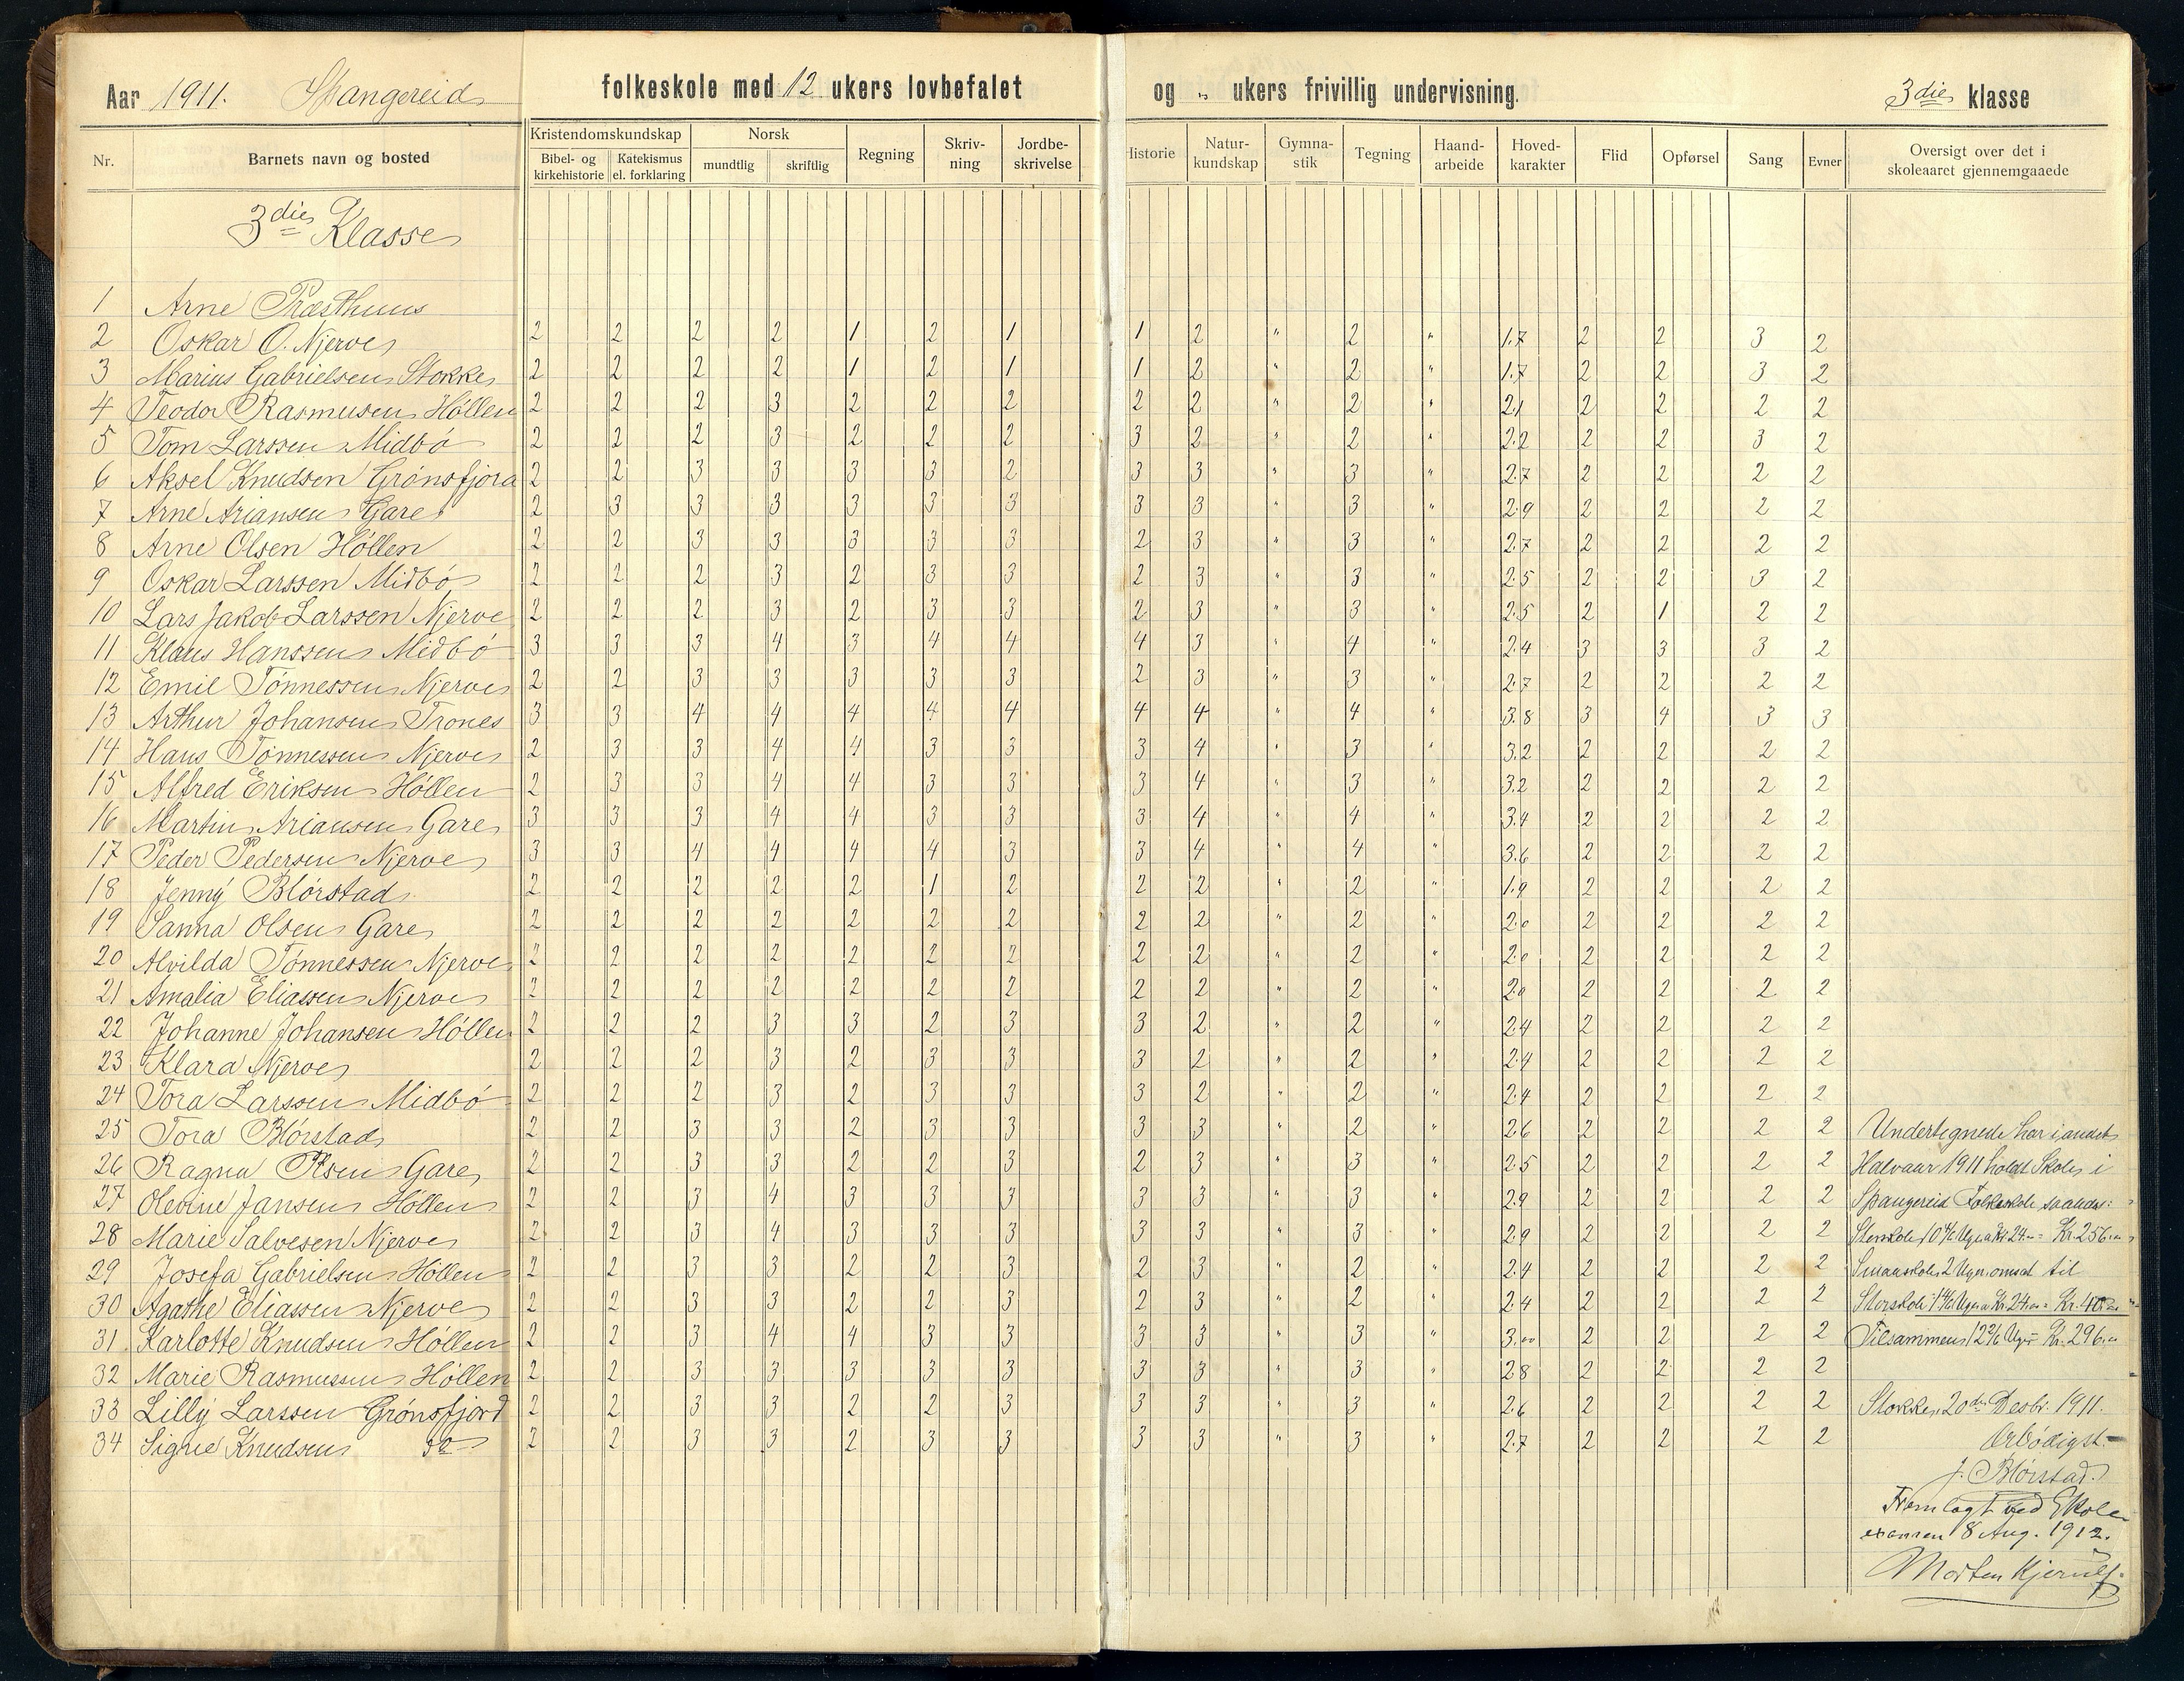 Aar 1911. Spangereid folkeskole med 12 ukers lovbefalet og " ukers frivillig undervisning. 3die klasse
Nr. Barnets navn og bosted Kristendomskundskap Bibel- og kirkehistorie Katekismus el. forklaring Norsk mundtlig skriftlig Regning Skriv-ning Jordbe-skrivelse Historie Natur-kundskap Gymna-stik Tegning Haand-arbeide Hoved-karakter Flid Opførsel Sang Evner Oversigt over det i skoleaaret gjennemgaaede
3die Klasse
1 Arne Præsthuus
2 Oskar O. Njerve 2 2 2 2 1 2 1 1 2 " 2 " 1.7 2 2 3 2
3 Marius Gabrielsen Stokke 2 2 2 2 1 2 1 1 2 " 2 " 1.7 2 2 3 2
4 Teodor Rasmusen Höllen 2 2 2 3 2 2 2 2 2 " 2 " 2.1 2 2 2 2
5 Tom Larssen Midbö 2 2 2 3 2 2 2 3 2 " 2 " 2.2 2 2 3 2
6 Aksel Knudsen Grönsfjord 2 2 3 3 3 3 2 3 3 " 3 " 2.7 2 2 2 2
7 Arne Ariansen Gare 2 3 3 3 3 3 3 3 3 " 3 " 2.9 2 2 2 2
8 Arne Olsen Höllen 2 2 3 3 3 3 3 2 3 " 3 " 2.7 2 2 2 2
9 Oskar Larssen Midbö 2 2 2 3 2 3 3 2 3 " 3 " 2.5 2 2 3 2
10 Lars Jakob Larssen Njerve 2 2 2 3 2 3 3 2 3 " 3 " 2.5 2 1 2 2
11 Klaus Hanssen Midbö 3 3 3 4 3 4 4 4 3 " 4 " 2.4 3 3 3 2
12 Emil Tönnessen Njerve 2 2 3 3 3 3 3 2 3 " 3 " 2.7 2 2 2 2
13 Arthur Johansen Trones 3 3 4 4 4 4 4 4 4 " 4 " 3.8 3 4 3 3
14 Hans Tönnessen Njerve 2 3 3 4 4 3 3 3 4 " 3 " 3.2 2 2 2 2
15 Alfred Eriksen Höllen 2 3 3 4 4 3 3 3 4 " 3 " 3.2 2 2 2 2
16 Martin Ariansen Gare 3 3 3 4 4 3 3 3 4 " 4 " 3.4 2 2 2 2
17 Peder Pedersen Njerve 3 3 4 4 4 4 3 3 4 " 4 " 3.6 2 2 2 2
18 Jenny Blörstad 2 2 2 2 2 1 2 2 2 " 2 " 1.9 2 2 2 2
19 Sanna Olsen Gare 2 2 2 2 2 2 2 2 2 " 2 " 2.0 2 2 2 2
20 Alvilda Tönnessen Njerve 2 2 2 2 2 2 2 2 2 " 2 " 2.0 2 2 2 2
21 Amalia Eliassen Njerve 2 2 2 2 2 2 2 2 2 " 2 " 2.0 2 2 2 2
22 Johanne Johansen Höllen 2 2 2 3 3 2 3 3 2 " 2 " 2.4 2 2 2 2
23 Klara Njerve 2 2 2 3 2 3 3 3 2 " 2 " 2.4 2 2 2 2
24 Tora Larssen Midbö 2 2 2 3 2 3 3 3 2 " 2 " 2.4 2 2 2 2
25 Tora Blörstad 2 2 3 3 2 3 3 3 3 " 2 " 2.6 2 2 2 2 Undertegnede har i andet
26 Ragna Olsen Gare 2 2 3 3 2 2 3 2 3 " 3 " 2.5 2 2 2 2 Halvaar 1911 holdt Skole i
27 Olevine Jansen Höllen 2 2 3 4 3 3 3 3 3 " 3 " 2.9 2 2 2 2 Spangereid Folkeskole saaledes:
28 Marie Salvesen Njerve 2 2 3 4 3 3 3 3 3 " 3 " 2.9 2 2 2 2 Storskole 10 4/6 Uger a Kr 24.00 = Kr. 256.00
29 Josefa Gabrielsen Höllen 2 2 3 3 2 2 3 2 3 " 2 " 2.4 2 2 2 2 Smaaskole 2 Uger omsat til
30 Agathe Eliassen Njerve 2 2 3 3 2 2 3 2 3 " 2 " 2.4 2 2 2 2 Storskole 1 4/6 Uger a Kr. 24.00 = Kr. 40.00
31 Karlotte Knudsen Höllen 2 2 3 4 4 3 3 3 3 " 3 " 3.00 2 2 2 2 Tilsammen 12 2/6 Uger = Kr. 296.00
32 Marie Rasmussen Höllen 2 2 3 3 3 3 3 3 3 " 3 " 2.8 2 2 2 2
33 Lilly Larssen Grönsfjord 2 2 3 3 2 2 3 3 3 " 3 " 2.6 2 2 2 2 Stokke, 20de Desbr. 1911.
34 Signe Knudsen do 2 2 3 3 2 3 3 3 3 " 3 " 2.7 2 2 2 2 Ærbödigst
J. Blörstad.
Fremlagt ved Skole-
examen 8 Aug. 1912.
Morten Kjerulf.